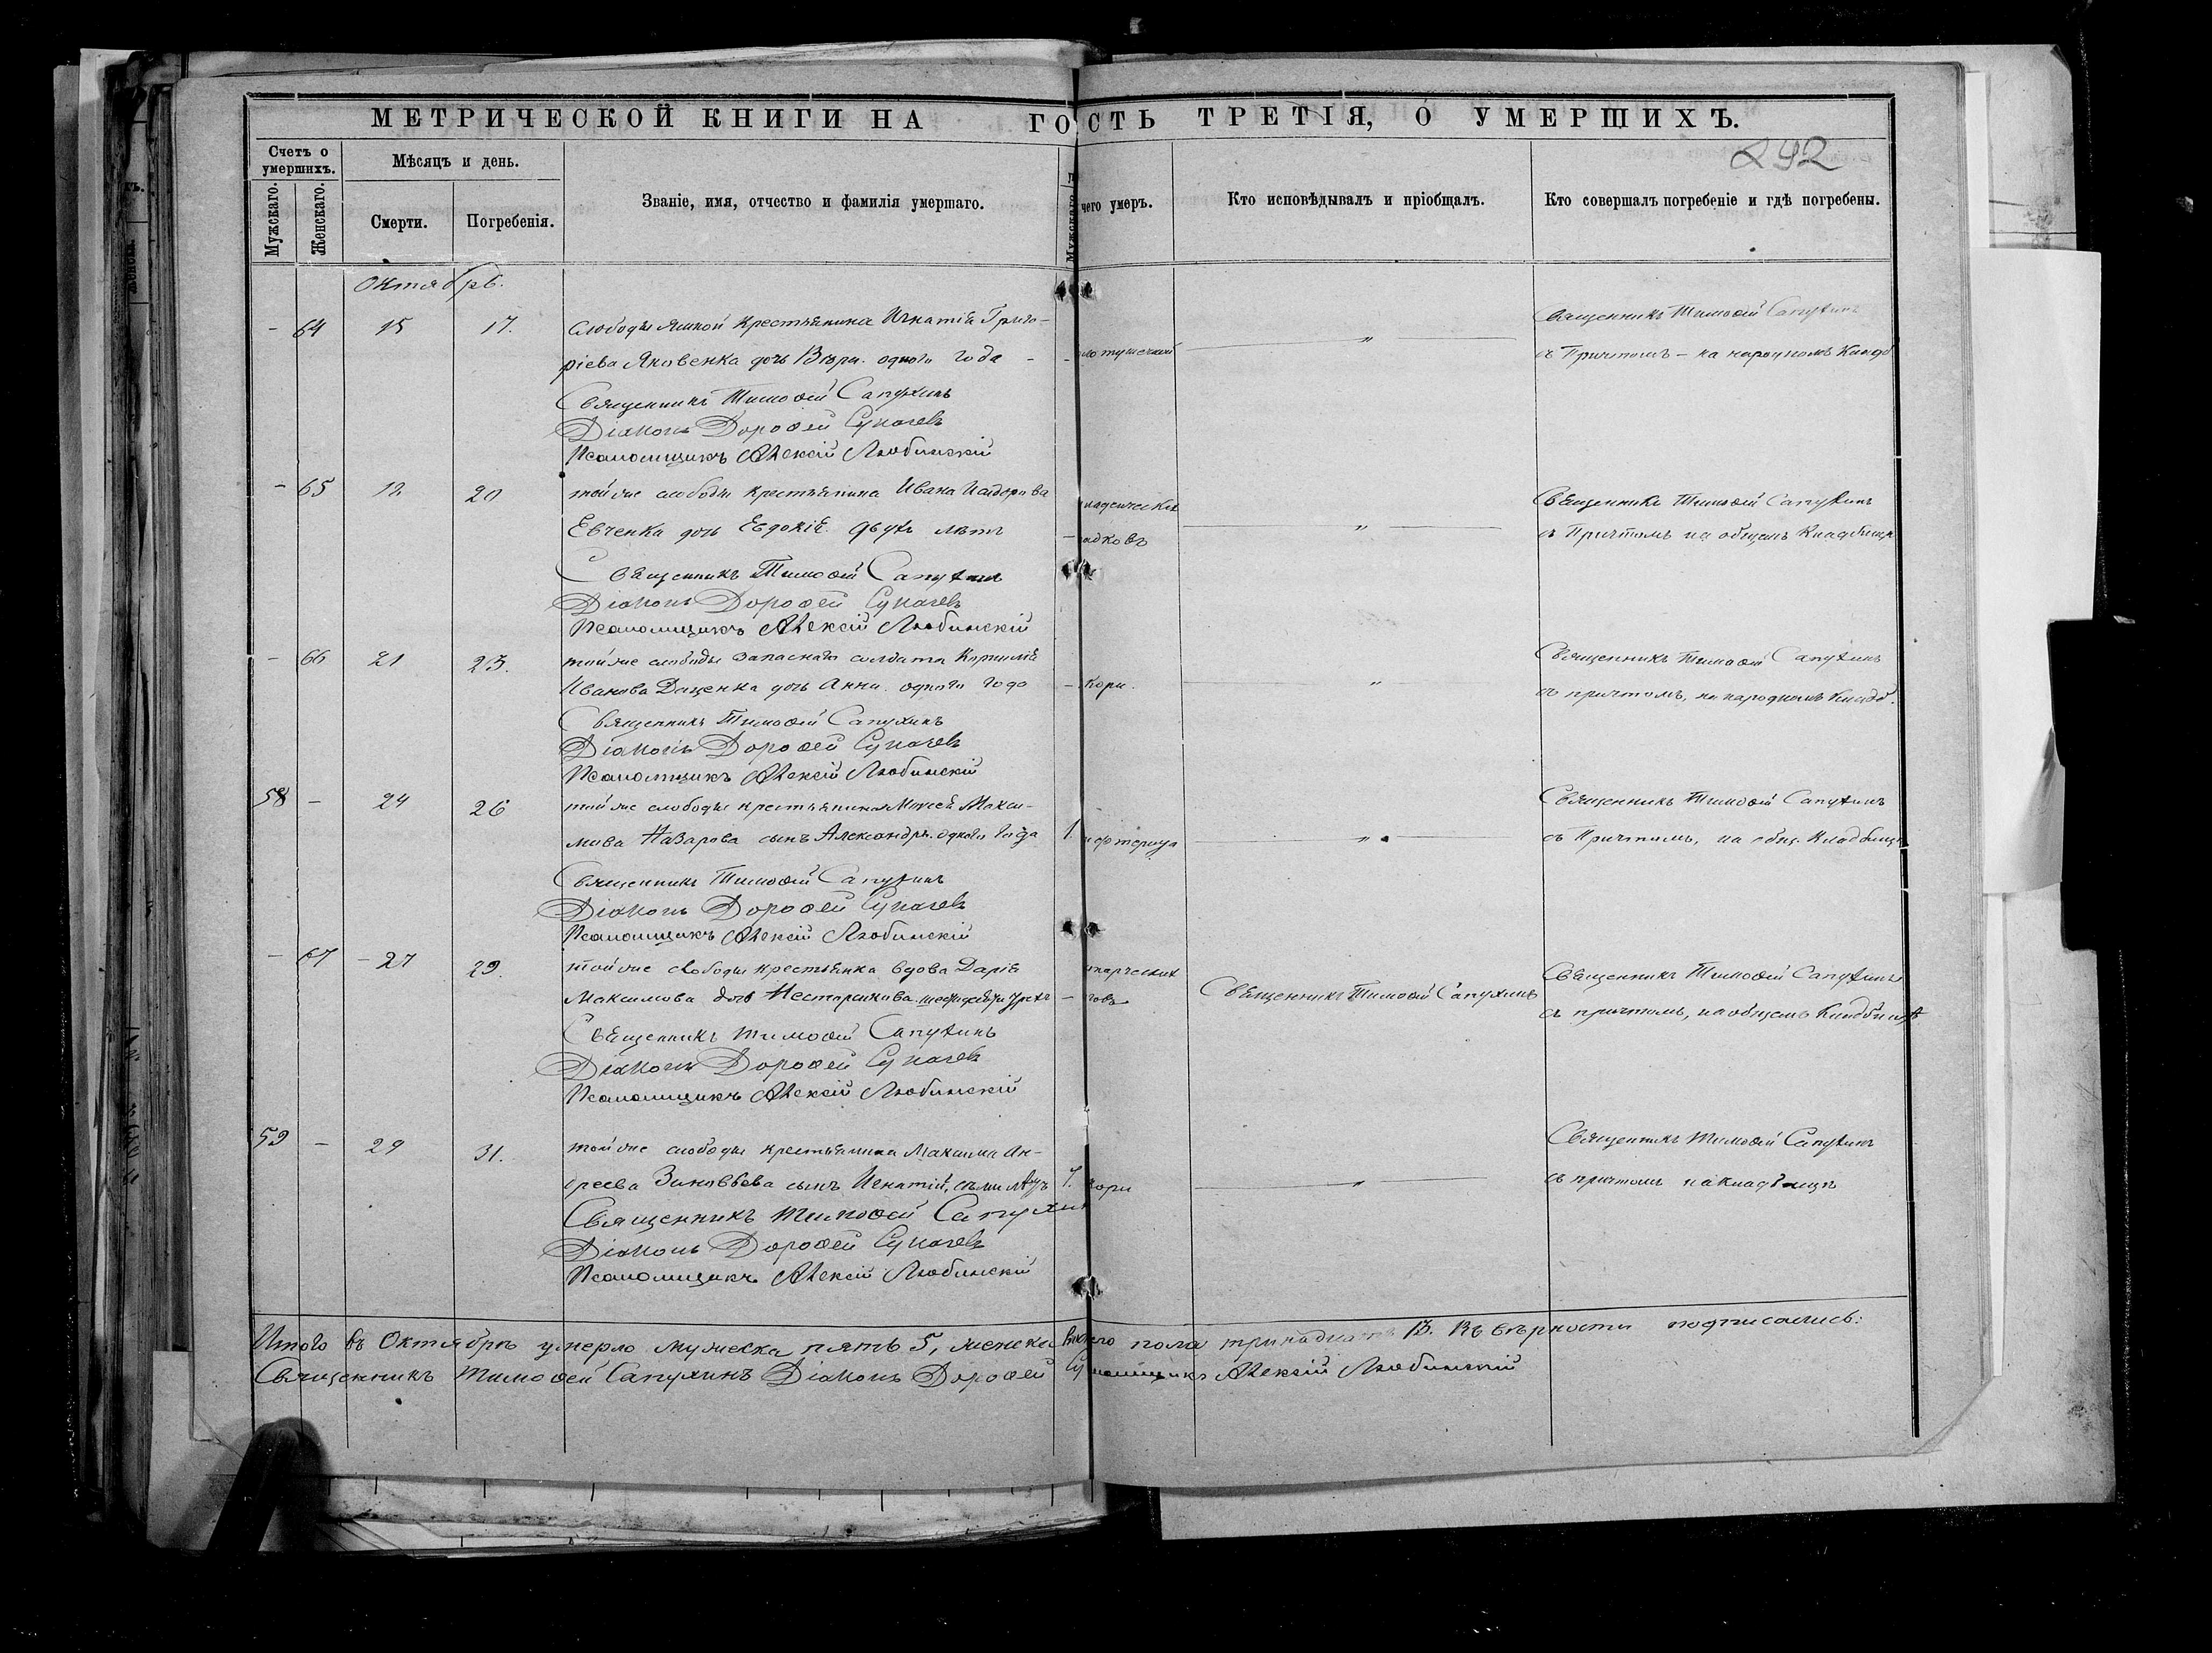 МЕТРИЧЕСКОЙ КНИГИ НА ГО
СТЬ ТРЕТІЯ, О УМЕРШИХЪ.
292
Счетъ о умершихъ.
Мужскаго.
Женскаго.
Мѣсяцъ и день.
Смерти.
Погребенія.
Званіе, имя, отчество и фамилія умершаго.
Мужскаго
чего умеръ.
Кто исповѣдывалъ и пріобщалъ.
Кто совершалъ погребеніе и гдѣ погребены.
Октябрь.
- 64 15 17. Слободы крестьянина Игнатія Григо- Священникъ Тимоѳей Сапухинъ
ріева Яковенка дочь Вѣра одного года - - " съ Причтомъ - на народномъ Кладб
Священникъ Тимоѳей Сапухинъ
Діаконъ Дороѳей Сукачевъ
Псаломщикъ Алексій Любинскій
- 65 12 20 той же слободы крестьянина Ивана Исидорова младенческихъ Священникъ Тимоѳей Сапухинъ
Евченка дочь Евдокія двухъ лѣтъ - адковъ " съ Причтомъ на общемъ Кладбищѣ
Священникъ Тимоѳей Сапухинъ
Діаконъ Дороѳей Сукачевъ
Псаломщикъ Алексій Любинскій
- 66 21 23. той же слободы запаснаго солдата Корнилія Священникъ Тимоѳей Сапухинъ
Иванова Даценка дочь Анна одного года - Кори. " съ причтомъ, на народномъ Кладб.
Священникъ Тимоѳей Сапухинъ
Діаконъ Дороѳей Сукачевъ
Псаломщикъ Алексій Любинскій
58 - 24 26 той же слободы крестьянина Моисея Макси- Священникъ Тимоѳей Сапухинъ
мова Назарова сынъ Александръ одного года 1. ифтерита " съ Причтомъ, на общ. Кладбищѣ
Священникъ Тимоѳей Сапухинъ
Діаконъ Дороѳей Сукачевъ
Псаломщикъ Алексій Любинскій
- 67 - 27 29. той же слободы крестьянка вдова Дарія Священникъ Тимоѳей Сапухинъ
Максимова - говъ Священникъ Тимоѳей Сапухинъ съ причтомъ, на общемъ Кладбищѣ
Священникъ Тимоѳей Сапухинъ
Діаконъ Дороѳей Сукачевъ
Псаломщикъ Алексій Любинскій
59 - 29 31. той же слободы крестьянина Максима Ан- Священникъ Тимоѳей Сапухинъ
дреева Зиновьева сынъ Игнатій, семи 7. кори " съ причтомъ на кладбищѣ
Священникъ Тимоѳей Сапухин
Діаконъ Дороѳей Сукачевъ
Псаломщикъ Алексій Любинскій
Итого въ Октябрѣ умерло мужеска пять 5, женска го пола тринадцать 13. Въ вѣрности подписались:
Священникъ Тимоѳей Сапухинъ Діаконъ Дороѳей Су ломщикъ Алексій Любинскій